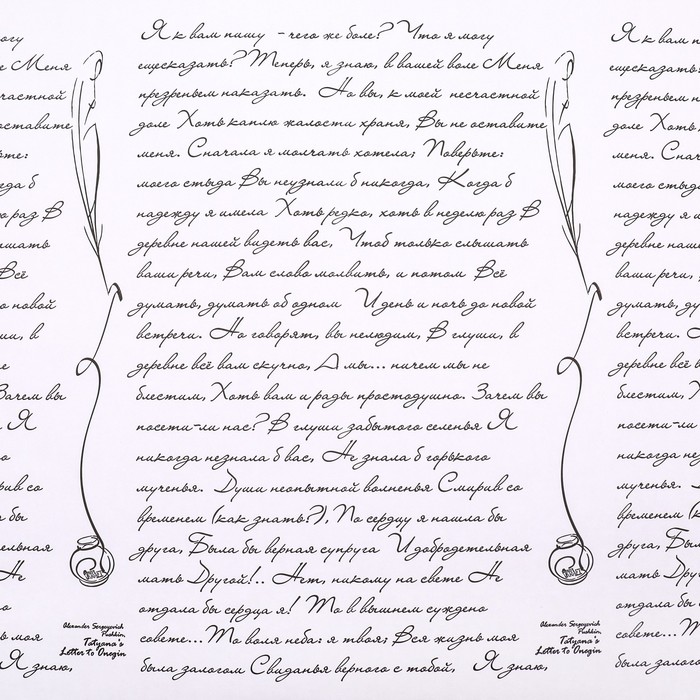 огу
е Меня
частной
оставите
те:
гда б
ю раз В
шать
Всё
о новой
ши, в
е
Зачем вы
Я
о
рив со
а бы
тельная
Не
о
ь моя
Я знаю,
Alexander Sergeyevich
Pushkin,
Tatyana's
Letter to Onegin
Я к вам пишу – чего же боле? Что я могу
ещесказать? Теперь, я знаю, в вашей воле Меня
презреньем наказать. Но вы, к моей несчастной
доле Хоть каплю жалости храня, Вы не оставите
меня. Сначала я молчать хотела; Поверьте:
моего стыда Вы неузнали б никогда, Когда б
надежду я имела Хоть редко, хоть в неделю раз В
деревне нашей видеть вас, Чтоб только слышать
ваши речи, Вам слово молвить, и потом Всё
думать, думать об одном И день и ночь до новой
встречи. Но говорят, вы нелюдим, В глуши, в
деревне всё вам скучно, А мы... ничем мы не
блестим, Хоть вам и рады простодушно. Зачем вы
посети-ли нас? В глуши забытого селенья Я
никогда незнала б вас, Не знала б горького
мученья. Души неопытной волненья Смирив со
временем (как знать?), По сердцу я нашла бы
друга, Была бы верная супруга И добродетельная
мать Другой!.. Нет, никому на свете Не
отдала бы сердца я! То в вышнем суждено
совете... То воля неба: я твоя; Вся жизнь моя
была залогом Свиданья верного с тобой, Я знаю,
Alexander Sergeyevich
Pushkin,
Tatyana's
Letter to Onegin
Я к вам п
ещесказать?
презреньем н
доле Хоть
меня. Снач
моего стыд
надежду я и
деревне наш
ваши речи,
думать, ду
встречи.
деревне всё в
блестим, Х
посети-ли
никогда не
мученья.
временем (к
друга, Был
мать Д
отдала б
совете... Т
была залого